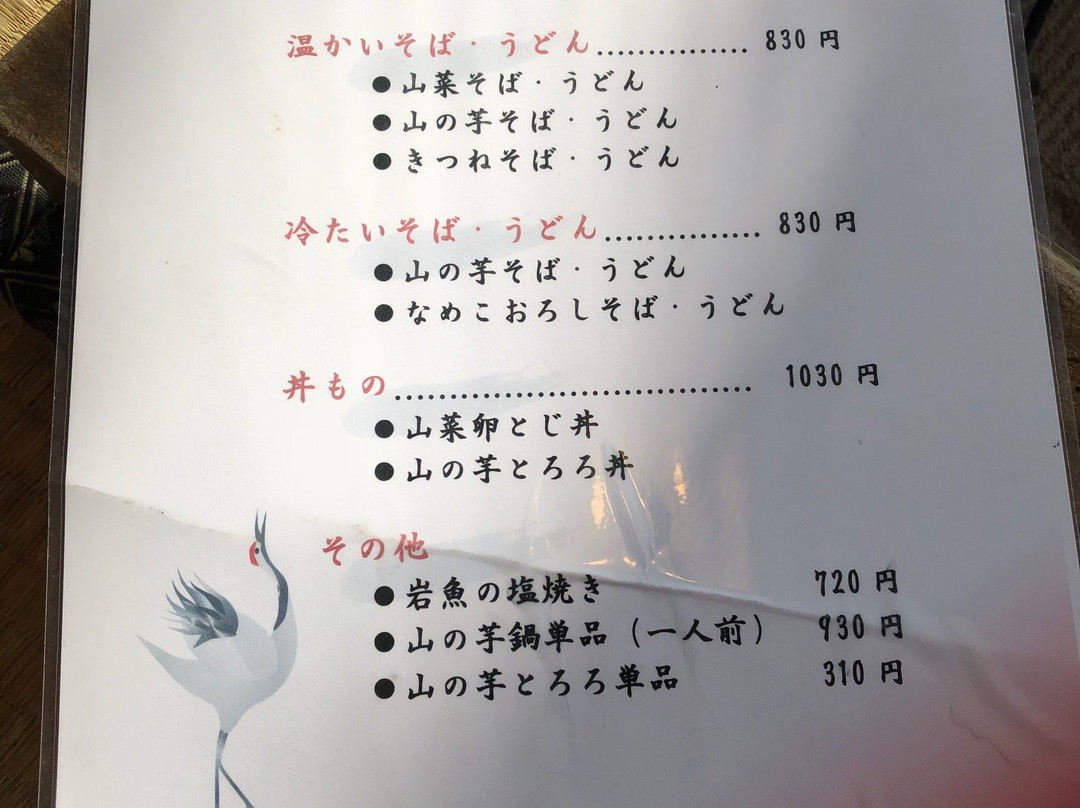 温かいそば・うどん............... 830 円
●山菜そば・うどん
●山の芋そば・うどん
●きつねそば・うどん
冷たいそば・うどん............... 830 円
●山の芋そば・うどん
●なめこおろしそば・うどん
丼もの.................................. 1030 円
●山菜卵とじ丼
●山の芋とろろ丼
その他
●岩魚の塩焼き 720 円
●山の芋鍋単品（一人前） 930 円
●山の芋とろろ単品 310 円